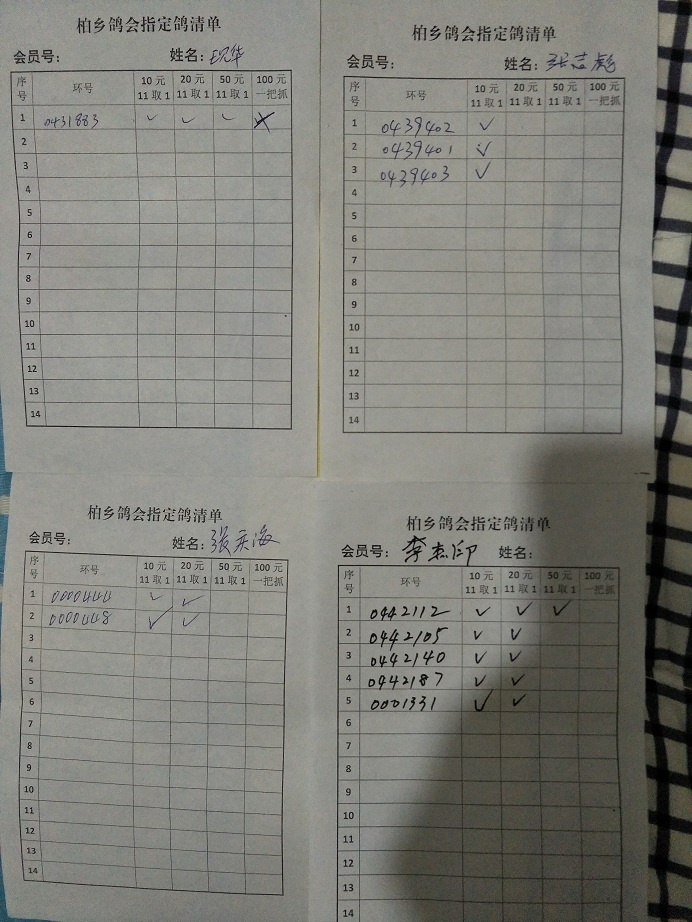 柏乡鸽会指定鸽清单
会员号： 姓名：现华
序号 环号 10元11取1 20元11取1 50元11取1 100元一把抓
1 0431883 ✓ ✓ ✓ ✗
2
3
4
5
6
7
8
9
10
11
12
13
14
柏乡鸽会指定鸽清单
会员号： 姓名：张志彪
序号 环号 10元11取1 20元11取1 50元11取1 100元一把抓
1 0439402 ✓
2 0439401 ✓
3 0439403 ✓
4
5
6
7
8
9
10
11
12
13
14
柏乡鸽会指定鸽清单
会员号： 姓名：张永海
序号 环号 10元11取1 20元11取1 50元11取1 100元一把抓
1 0000444 ✓ ✓
2 0000448 ✓ ✓
3
4
5
6
7
8
9
10
11
12
13
14
柏乡鸽会指定鸽清单
会员号：李志印 姓名：
序号 环号 10元11取1 20元11取1 50元11取1 100元一把抓
1 0442112 ✓ ✓ ✓
2 0442105 ✓ ✓
3 0442140 ✓ ✓
4 0442187 ✓ ✓
5 0001331 ✓ ✓
6
7
8
9
10
11
12
13
14